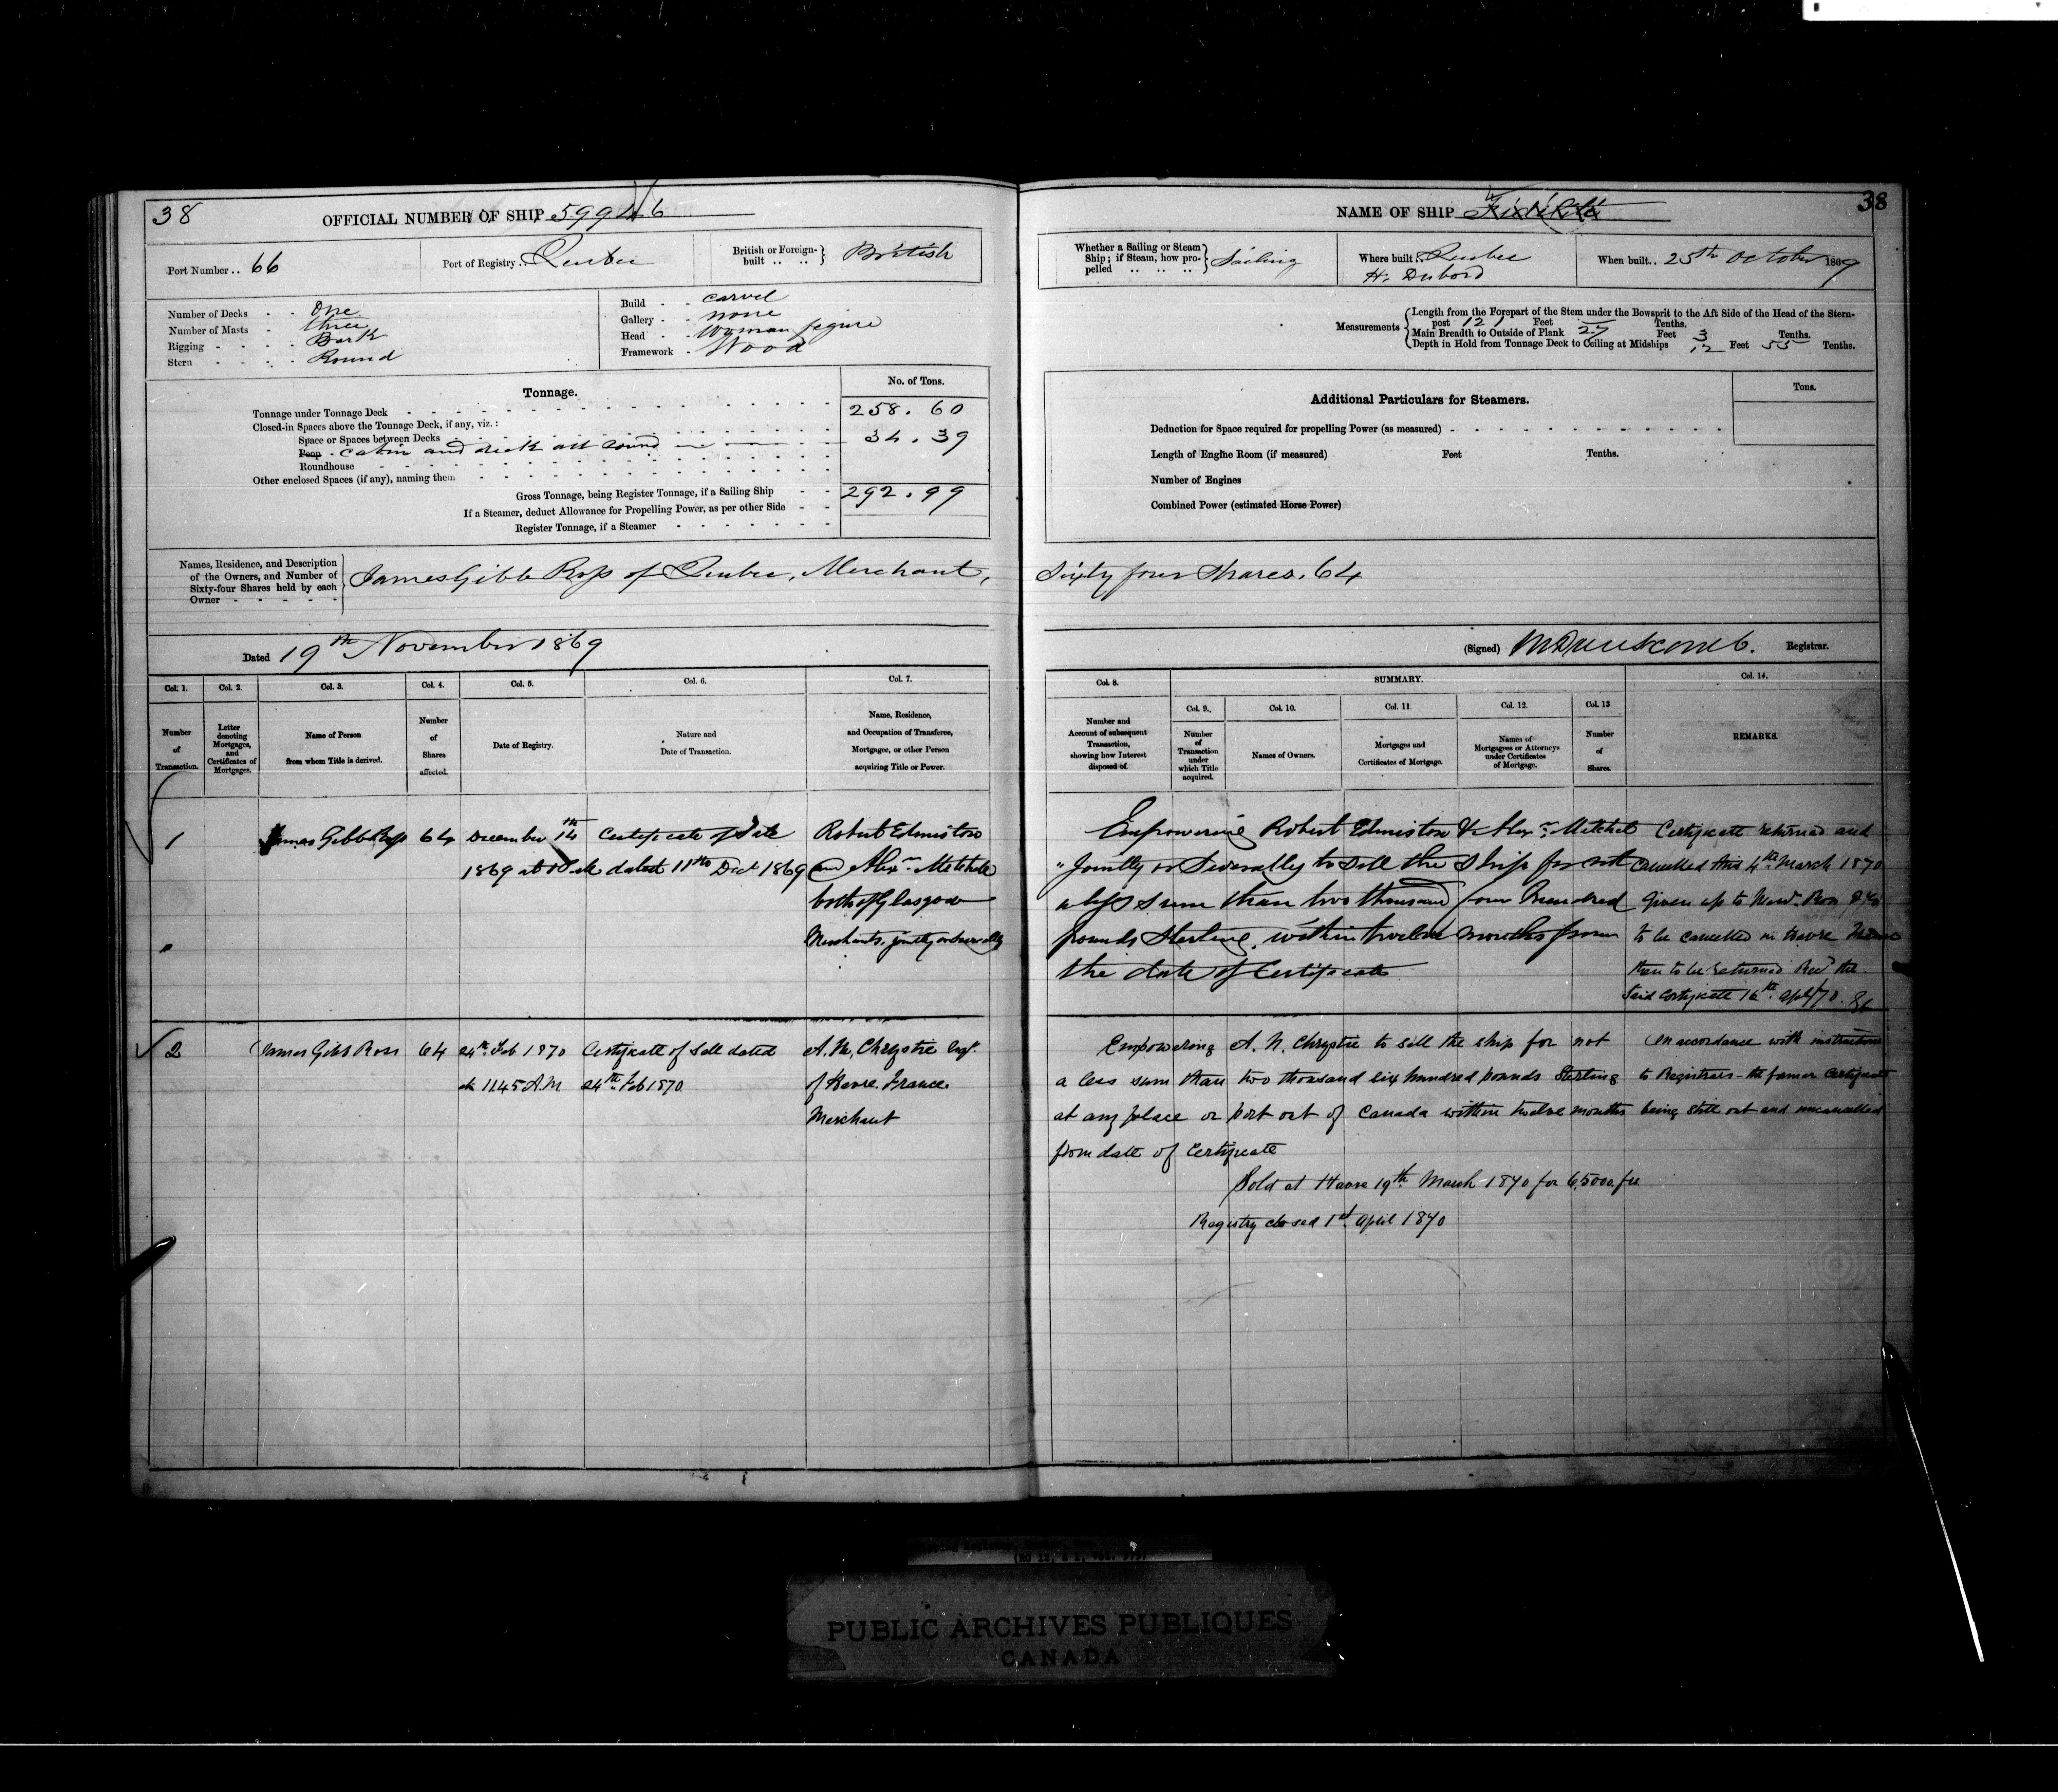 38
OFFICIAL NUMBER OF SHIP 59946
Port Number.. 66
Port of Registry.. Quebec
British or Foreign-built .. .. British
Number of Decks - - One
Number of Masts - three
Rigging - - - - Bark
Stern - - - - Round
Build - - carvel
Gallery - - none
Head - - Woman figure
Framework - Wood
Tonnage.
No. of Tons.
Tonnage under Tonnage Deck 258.60
Closed-in Spaces above the Tonnage Deck, if any, viz.:
Space or Spaces between Decks 34.39
Poop - cabin and deck all round
Roundhouse
Other enclosed Spaces (if any), naming them
Gross Tonnage, being Register Tonnage, if a Sailing Ship - - 292.99
If a Steamer, deduct Allowance for Propelling Power, as per other Side - -
Register Tonnage, if a Steamer
Names, Residence, and Description of the Owners, and Number of Sixty-four Shares held by each Owner
James Gibb Ross of Quebec, Merchant,
Dated 19th November 1869
Col. 1. Col. 2. Col. 3. Col. 4. Col. 5. Col. 6. Col. 7.
Number of Transaction.
Letter denoting Mortgages, and Certificates of Mortgages.
Name of Person from whom Title is derived.
Number of Shares affected.
Date of Registry.
Nature and Date of Transaction.
Name, Residence, and Occupation of Transferee, Mortgagee, or other Person acquiring Title or Power.
1 James Gibb Ross 64 December 14th Certificate of Sale Robert Edmiston
1869 at dated 11th Dec 1869 and Alexr. Mitchell
both of Glasgow
Merchants, jointly or severally
2 James Gibb Ross 64 24th Feb 1870 Certificate of Sale dated A. N. Chrystie Esqr.
at 11.45 A.M 24th Feb 1870 of Havre, France
Merchant
NAME OF SHIP Fidélité
38
Whether a Sailing or Steam Ship; if Steam, how propelled .. .. .. Sailing
Where built.. Quebec
H. Dubord
When built.. 25th October 1869
Measurements
Length from the Forepart of the Stem under the Bowsprit to the Aft Side of the Head of the Stern-
post 121 Feet — Tenths.
Main Breadth to Outside of Plank 27 Feet 3 Tenths.
Depth in Hold from Tonnage Deck to Ceiling at Midships 12 Feet 55 Tenths.
Additional Particulars for Steamers.
Tons.
Deduction for Space required for propelling Power (as measured)
Length of Engine Room (if measured) Feet Tenths.
Number of Engines
Combined Power (estimated Horse Power)
Sixty four Shares. 64
(Signed) Registrar.
Col. 8. SUMMARY. Col. 14.
Col. 9. Col. 10. Col. 11. Col. 12. Col. 13
Number and Account of subsequent Transaction, showing how Interest disposed of.
Number of Transaction under which Title acquired.
Names of Owners.
Mortgages and Certificates of Mortgage.
Names of Mortgagees or Attorneys under Certificates of Mortgage.
Number of Shares.
REMARKS.
Empowering Robert Edmiston & Alexr. Mitchel
"Jointly or Severally to sell the Ship for not
a less sum than two thousand four Hundred
pounds Sterling, within twelve months from
the date of Certificate
Certificate returned and
Cancelled this 4th March 1870
Given up to
to be cancelled in Havre
then to be returned Recd the
Said Certificate 16th April/70.
Empowering A. N. Chrystie to sell the ship for not
a less sum than two thousand six hundred pounds Sterling
at any place or port out of Canada within twelve months
from date of Certificate
Sold at Havre 19th March 1870 for 65000 fr
Registry closed 1st April 1870
In accordance with instructions
to Registrars - the former Certificate
being still out and uncancelled
PUBLIC ARCHIVES PUBLIQUES
CANADA